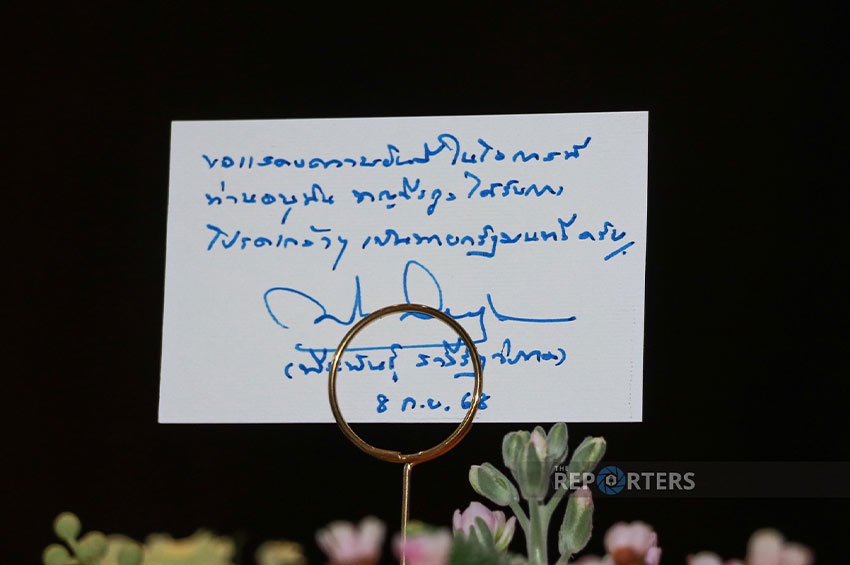 ขอแสดงความยินดี ในโอกาสที่
ท่านอนุทิน ชาญวีรกูล ได้รับการ
โปรดเกล้าฯ เป็นนายกรัฐมนตรี ครับ
(พีระพันธุ์ สาลีรัฐวิภาค)
8 ก.ย. 68
THE
REPORTERS